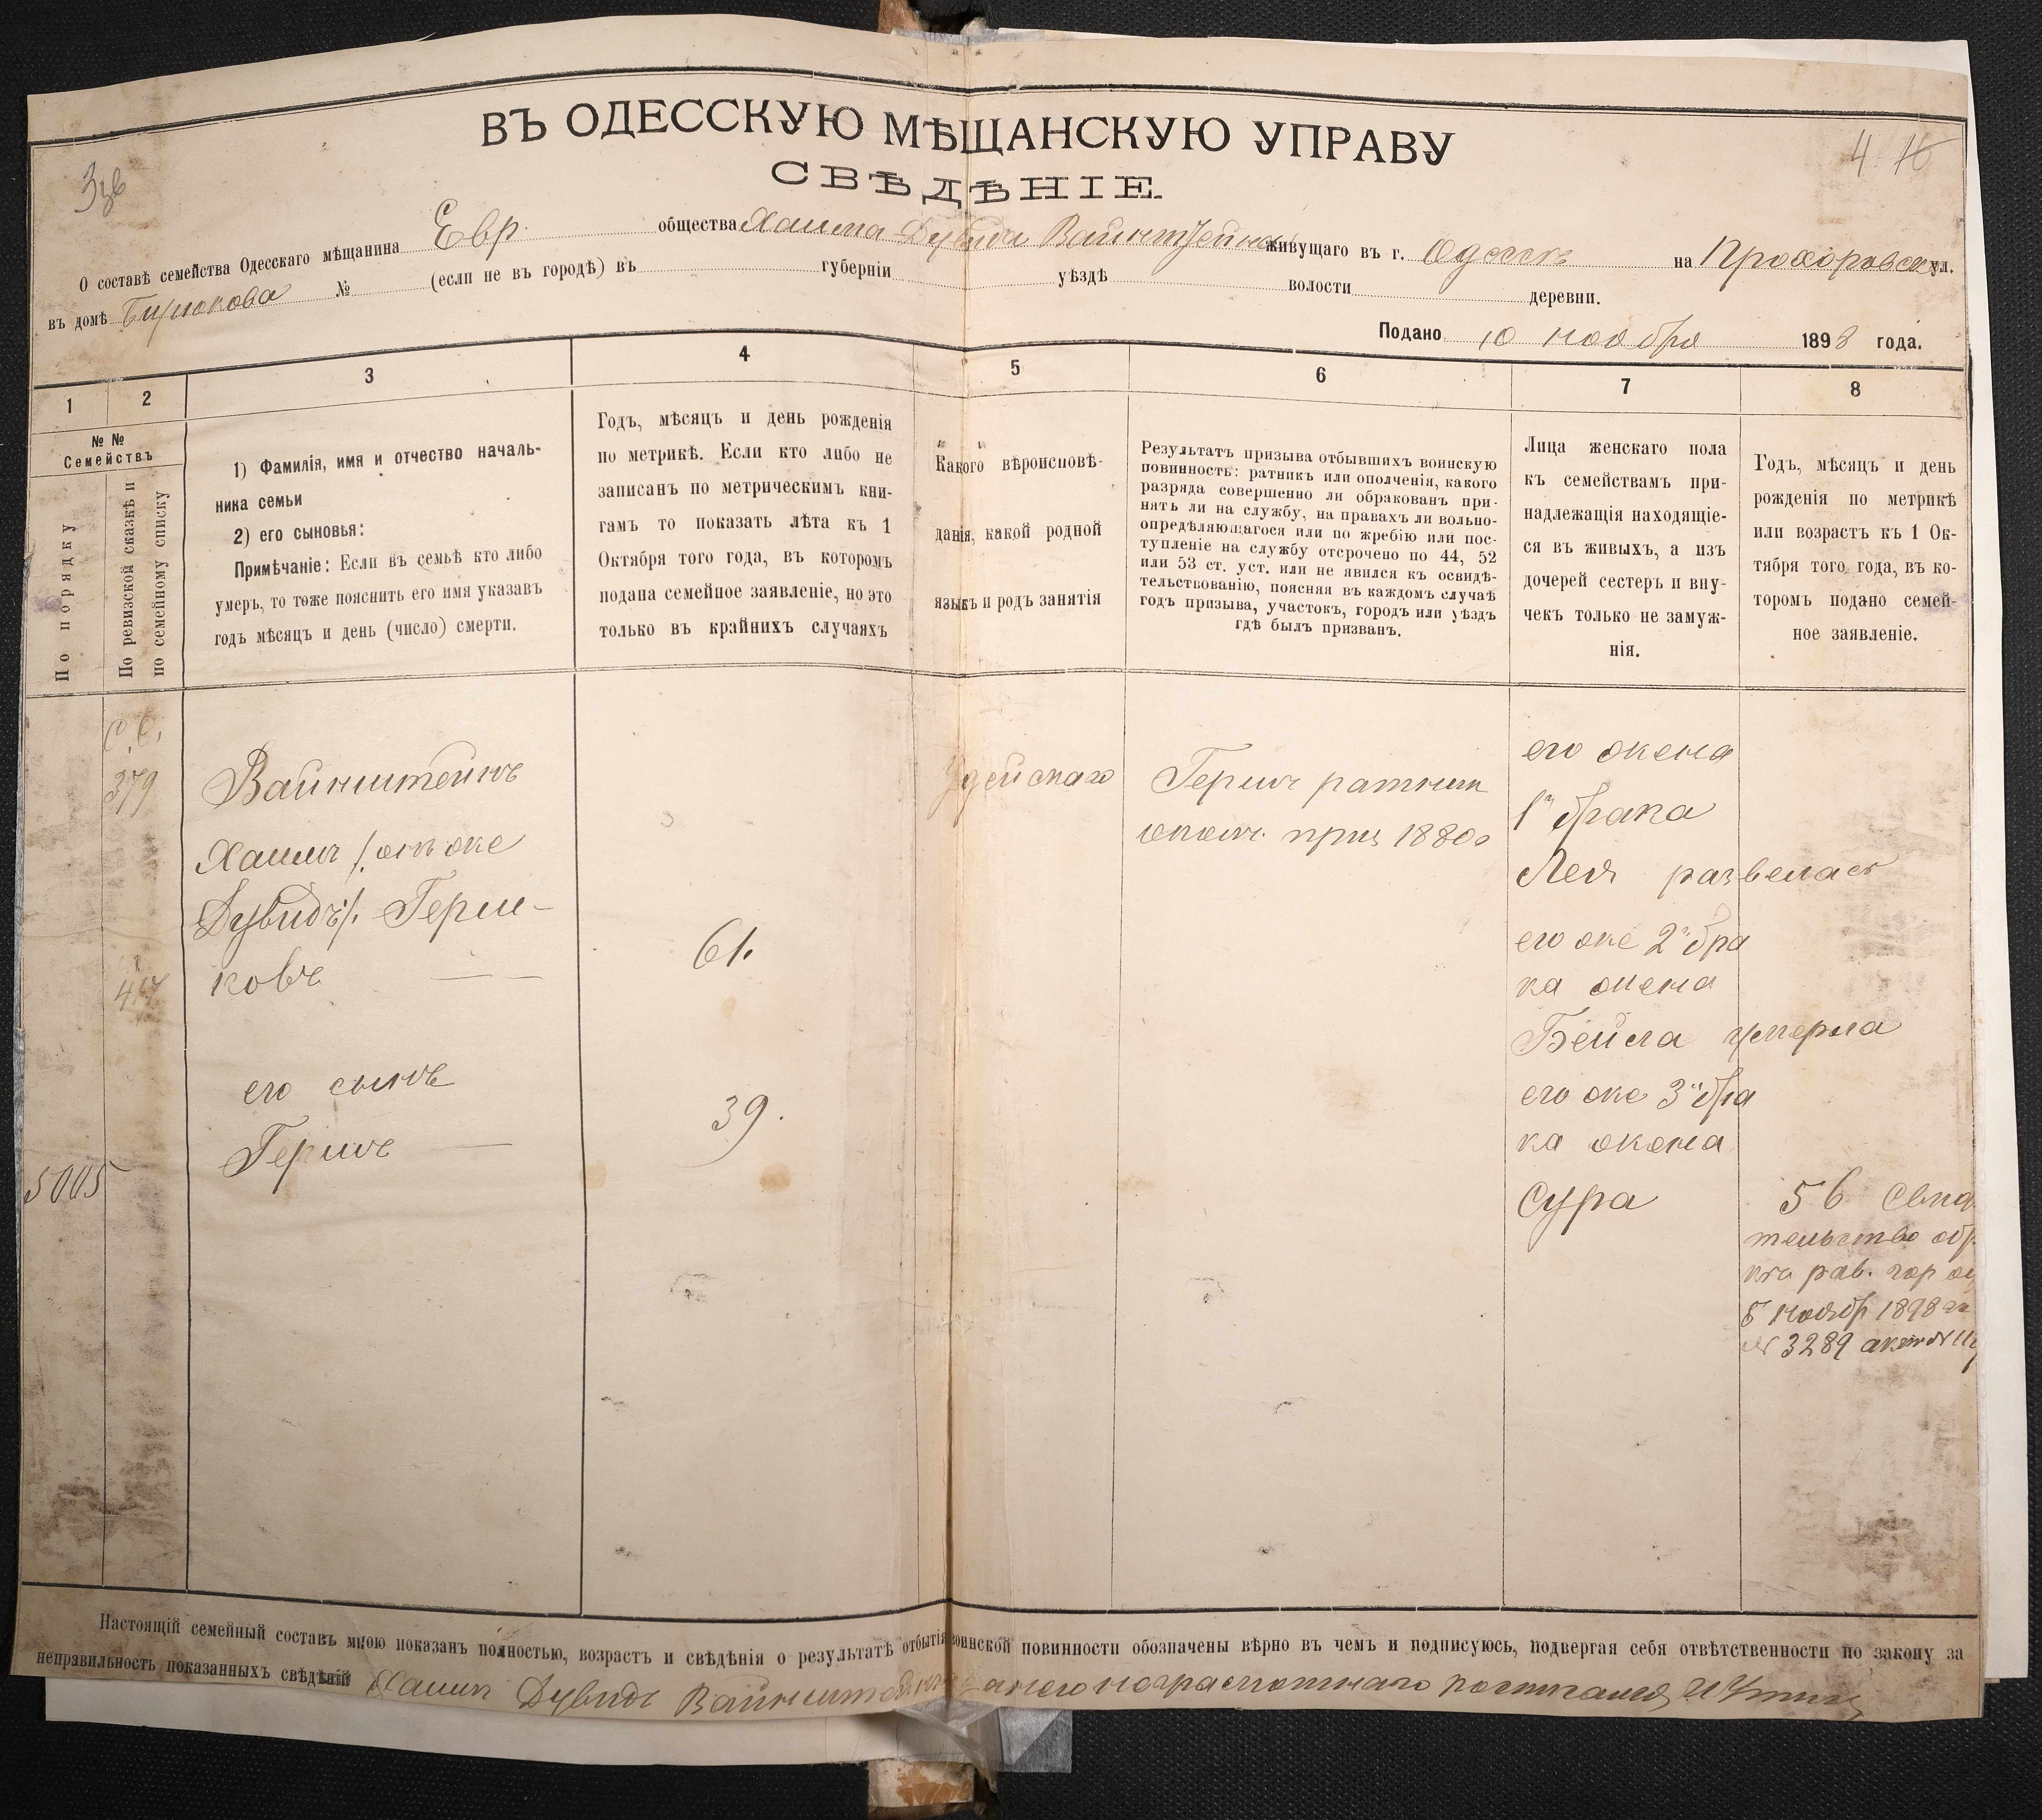 ВЪ ОДЕССКУЮ МѢЩАНСКУЮ УПРАВУ
СВѢДѢНІЕ.
4
О составѣ семейства Одесскаго мѣщанина Евр. общества Хаима Дувида Вайнштейна живущаго въ г. Одессѣ на Прохоровской ул.
въ домѣ Бирюкова № (если не въ городѣ) въ губерніи уѣздѣ волости деревни.
Подано 10 ноября 1898 года.
1 2 3 4 5 6 7 8
№ №
Семействъ
По порядку
По ревизской сказкѣ и
по семейному списку
1) Фамилія, имя и отчество началь-
ника семьи
2) его сыновья:
Примѣчаніе: Если въ семьѣ кто либо
умеръ, то тоже пояснить его имя указавъ
годъ мѣсяцъ и день (число) смерти.
Годъ, мѣсяцъ и день рожденія
по метрикѣ. Если кто либо не
записанъ по метрическимъ кни-
гамъ то показать лѣта къ 1
Октября того года, въ которомъ
подана семейное заявленіе, но это
только въ крайнихъ случаяхъ
Какого вѣроисповѣ-
данія, какой родной
языкъ и родъ занятія
Результатъ призыва отбывшихъ воинскую
повинность: ратникъ или ополченія, какого
разряда совершенно ли обракованъ при-
нятъ ли на службу, на правахъ ли вольно-
опредѣляющагося или по жребію или пос-
тупленіе на службу отсрочено по 44, 52
или 53 ст. уст. или не явился къ освидѣ-
тельствованію, поясняя въ каждомъ случаѣ
годъ призыва, участокъ, городъ или уѣздъ
гдѣ былъ призванъ.
Лица женскаго пола
къ семействамъ при-
надлежащія находящіе-
ся въ живыхъ, а изъ
дочерей сестеръ и вну-
чекъ только не замуж-
нія.
Годъ, мѣсяцъ и день
рожденія по метрикѣ
или возрастъ къ 1 Ок-
тября того года, въ ко-
торомъ подано семей-
ное заявленіе.
С.С.
379
417
5005
Вайнштейнъ
Хаимъ /онъ же
Дувидъ/. Герш-
ковъ — —
его сынъ
Гершъ —
61.
39.
Іудейскаго
Гершъ ратник
ополч. приз 1880г
его жена
1го брака
Лея развелась
его же 2го бра
ка жена
Бейла умерла
его же 3го бра
ка жена
Сура
56 Свид
тельство об
рав. гор од
5 Ноябр 1898
№ 3289
Настоящій семейный составъ мною показанъ полностью, возрастъ и свѣдѣнія о результатѣ отбытія воинской повинности обозначены вѣрно въ чемъ и подписуюсь, подвергая себя отвѣтственности по закону за
неправильность показанныхъ свѣдѣній Хаимъ Дувидъ Вайнштейнъ а за него неграмотнаго росписался